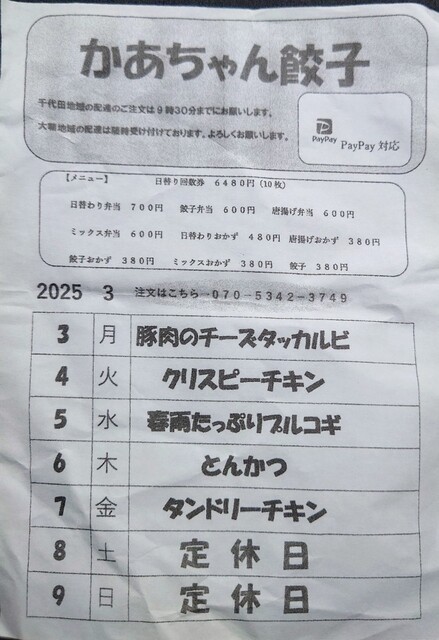 かあちゃん餃子
千代田地域の配達のご注文は9時30分までにお願いします。
大竹地域の配達は随時受け付けております。よろしくお願いします。
PayPay PayPay 対応
【メニュー】 日替り回数券 6480円(10枚)
日替わり弁当 700円 餃子弁当 600円 唐揚げ弁当 600円
ミックス弁当 600円 日替わりおかず 480円 唐揚げおかず 380円
餃子おかず 380円 ミックスおかず 380円 餃子 380円
2025 3 注文はこちら→070-5342-3749
3 月 豚肉のチーズタッカルビ
4 火 クリスピーチキン
5 水 春雨たっぷりプルコギ
6 木 とんかつ
7 金 タンドリーチキン
8 土 定休日
9 日 定休日